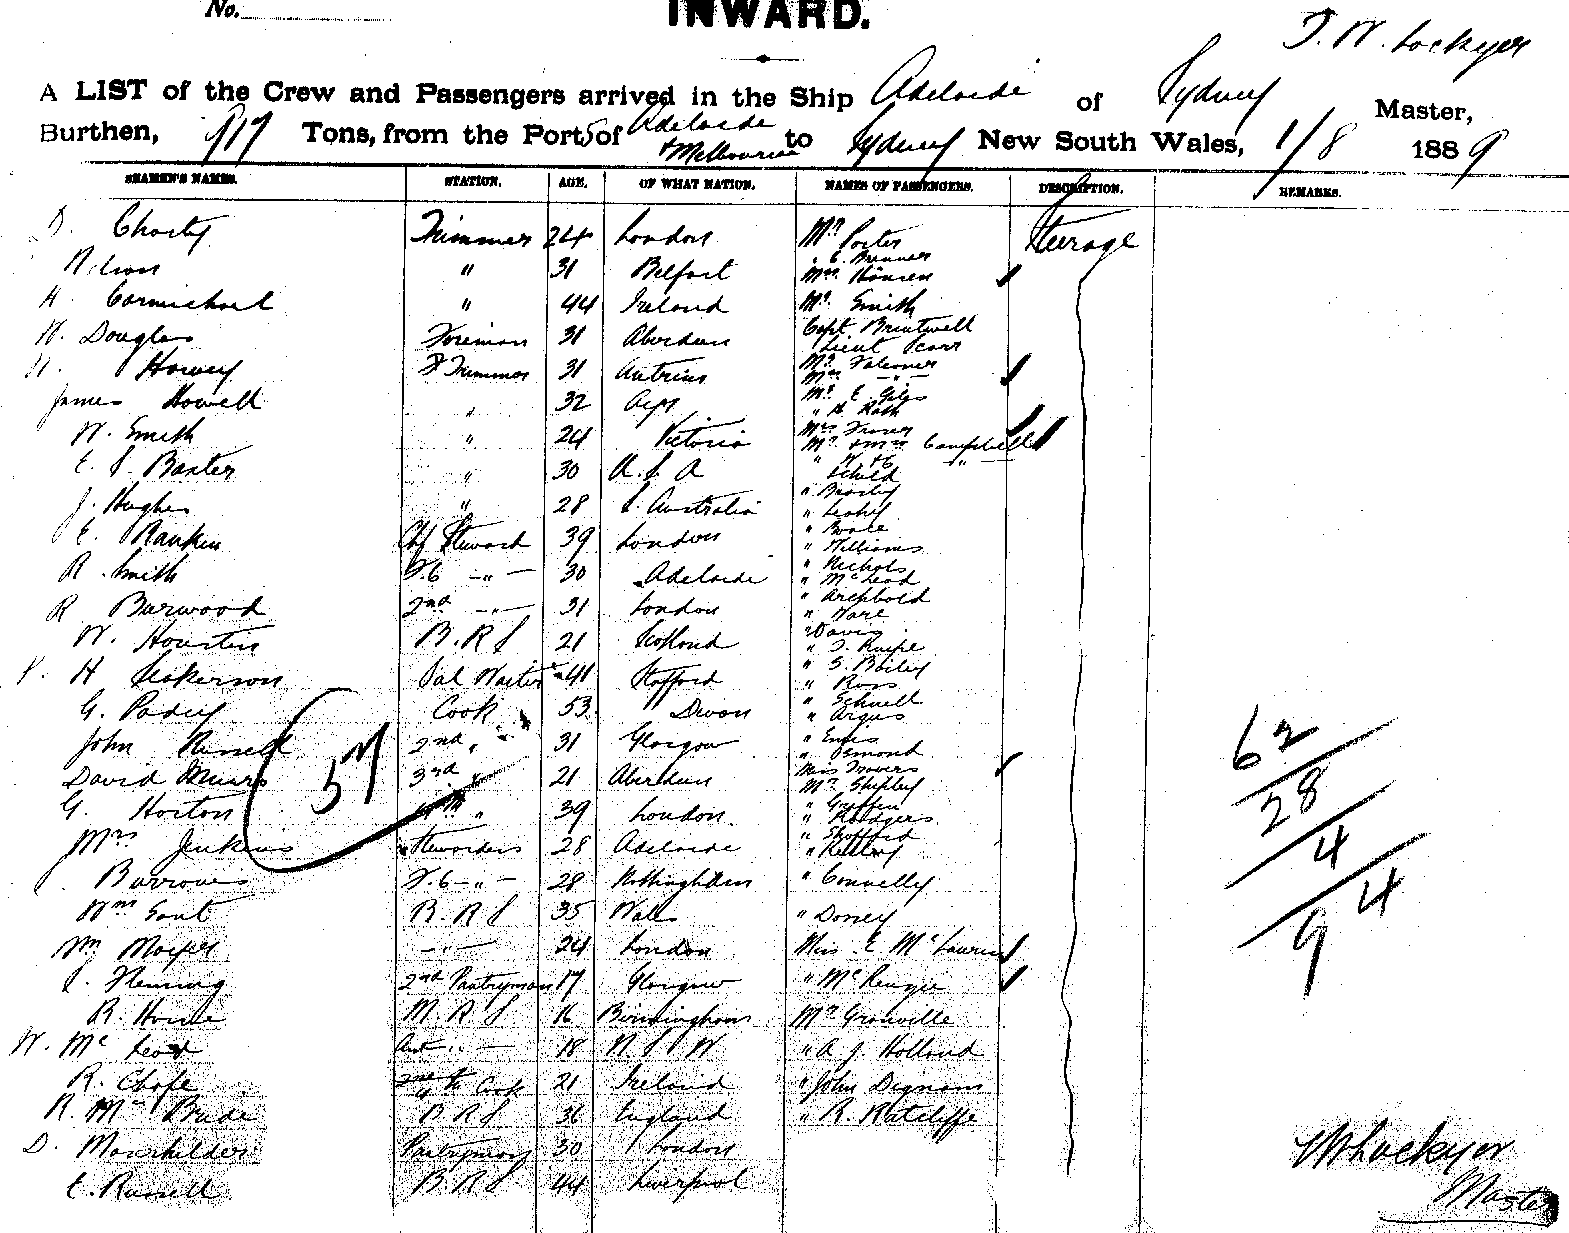 No.
INWARD.
T. W. Lockyer
A LIST of the Crew and Passengers arrived in the Ship Adelaide of Sydney Master,
Burthen, 917 Tons, from the Port S of Adelaide & Melbourne to Sydney New South Wales, 1/8 1889
SEAMEN'S NAMES. STATION. AGE. OF WHAT NATION. NAMES OF PASSENGERS. DESCRIPTION. REMARKS.
D. Trimmer 24 London Mr Porter Steerage
" C. Brenner
Nilson " 31 Belfast Mrs Hansen
H. Carmichael " 44 Ireland Mr. Smith
W. Douglas Foreman 31 Aberdeen Capt Brintwell
Lieut Carr
Harvey Trimmer 31 Antrim Mr Falconer
Mrs - " -
James Howell " 32 Ayr Mr E. Giles
" H. Rath
W. Smith " 24 Victoria Mrs Fraser
Mr & Mrs Campbell
E. S. Baxter " 30 child
J. Hughes " 28 S. Australia " Brosby
" Leahy
" Boase
E. Rankin Chf Steward 39 London " Williams
" Nichols
R. Smith - " - 30 Adelaide " McLeod
" Archbold
R Burwood 2nd - " - 31 London " Ware
" Davis
W. Houston B. R S 21 Scotland
" S. Bailey
H Sal Waiter 41 Stafford " Ross
" Schnell
G. Padey Cook 53 Devon " Argus
" Ennis
John Russell 2nd " 31 Glasgow " Osmond
Miss Travers
David Muirs 3rd " 21 Aberdeen Mr. Shipley
" Griffin
G. Horton 57 " 39 London " Rodgers
" Shofford
Mrs Jenkins Stewardess 28 Adelaide
Burrows - " - 28 Nottingham " Connelly
Wm Gant B. R S 35 Wales " Dorsey
Wm - " - 24 London Miss E McLaurin
J. Fleming 2nd Pantryman 17 Glasgow " McKenzie
R. Howse M. R S 16 Birmingham Mr Granville
W. McLeod - " - 18 N S W " A J. Holland
R. Chofe Cook 21 Ireland " John Dignam
R. McBride B R S 36 England " R. Ratcliffe
D. Moorhilder Pantryman 30 London
E. Russell B. R S 44 Liverpool
62
28
4
4
9
T W Lockyer
Master